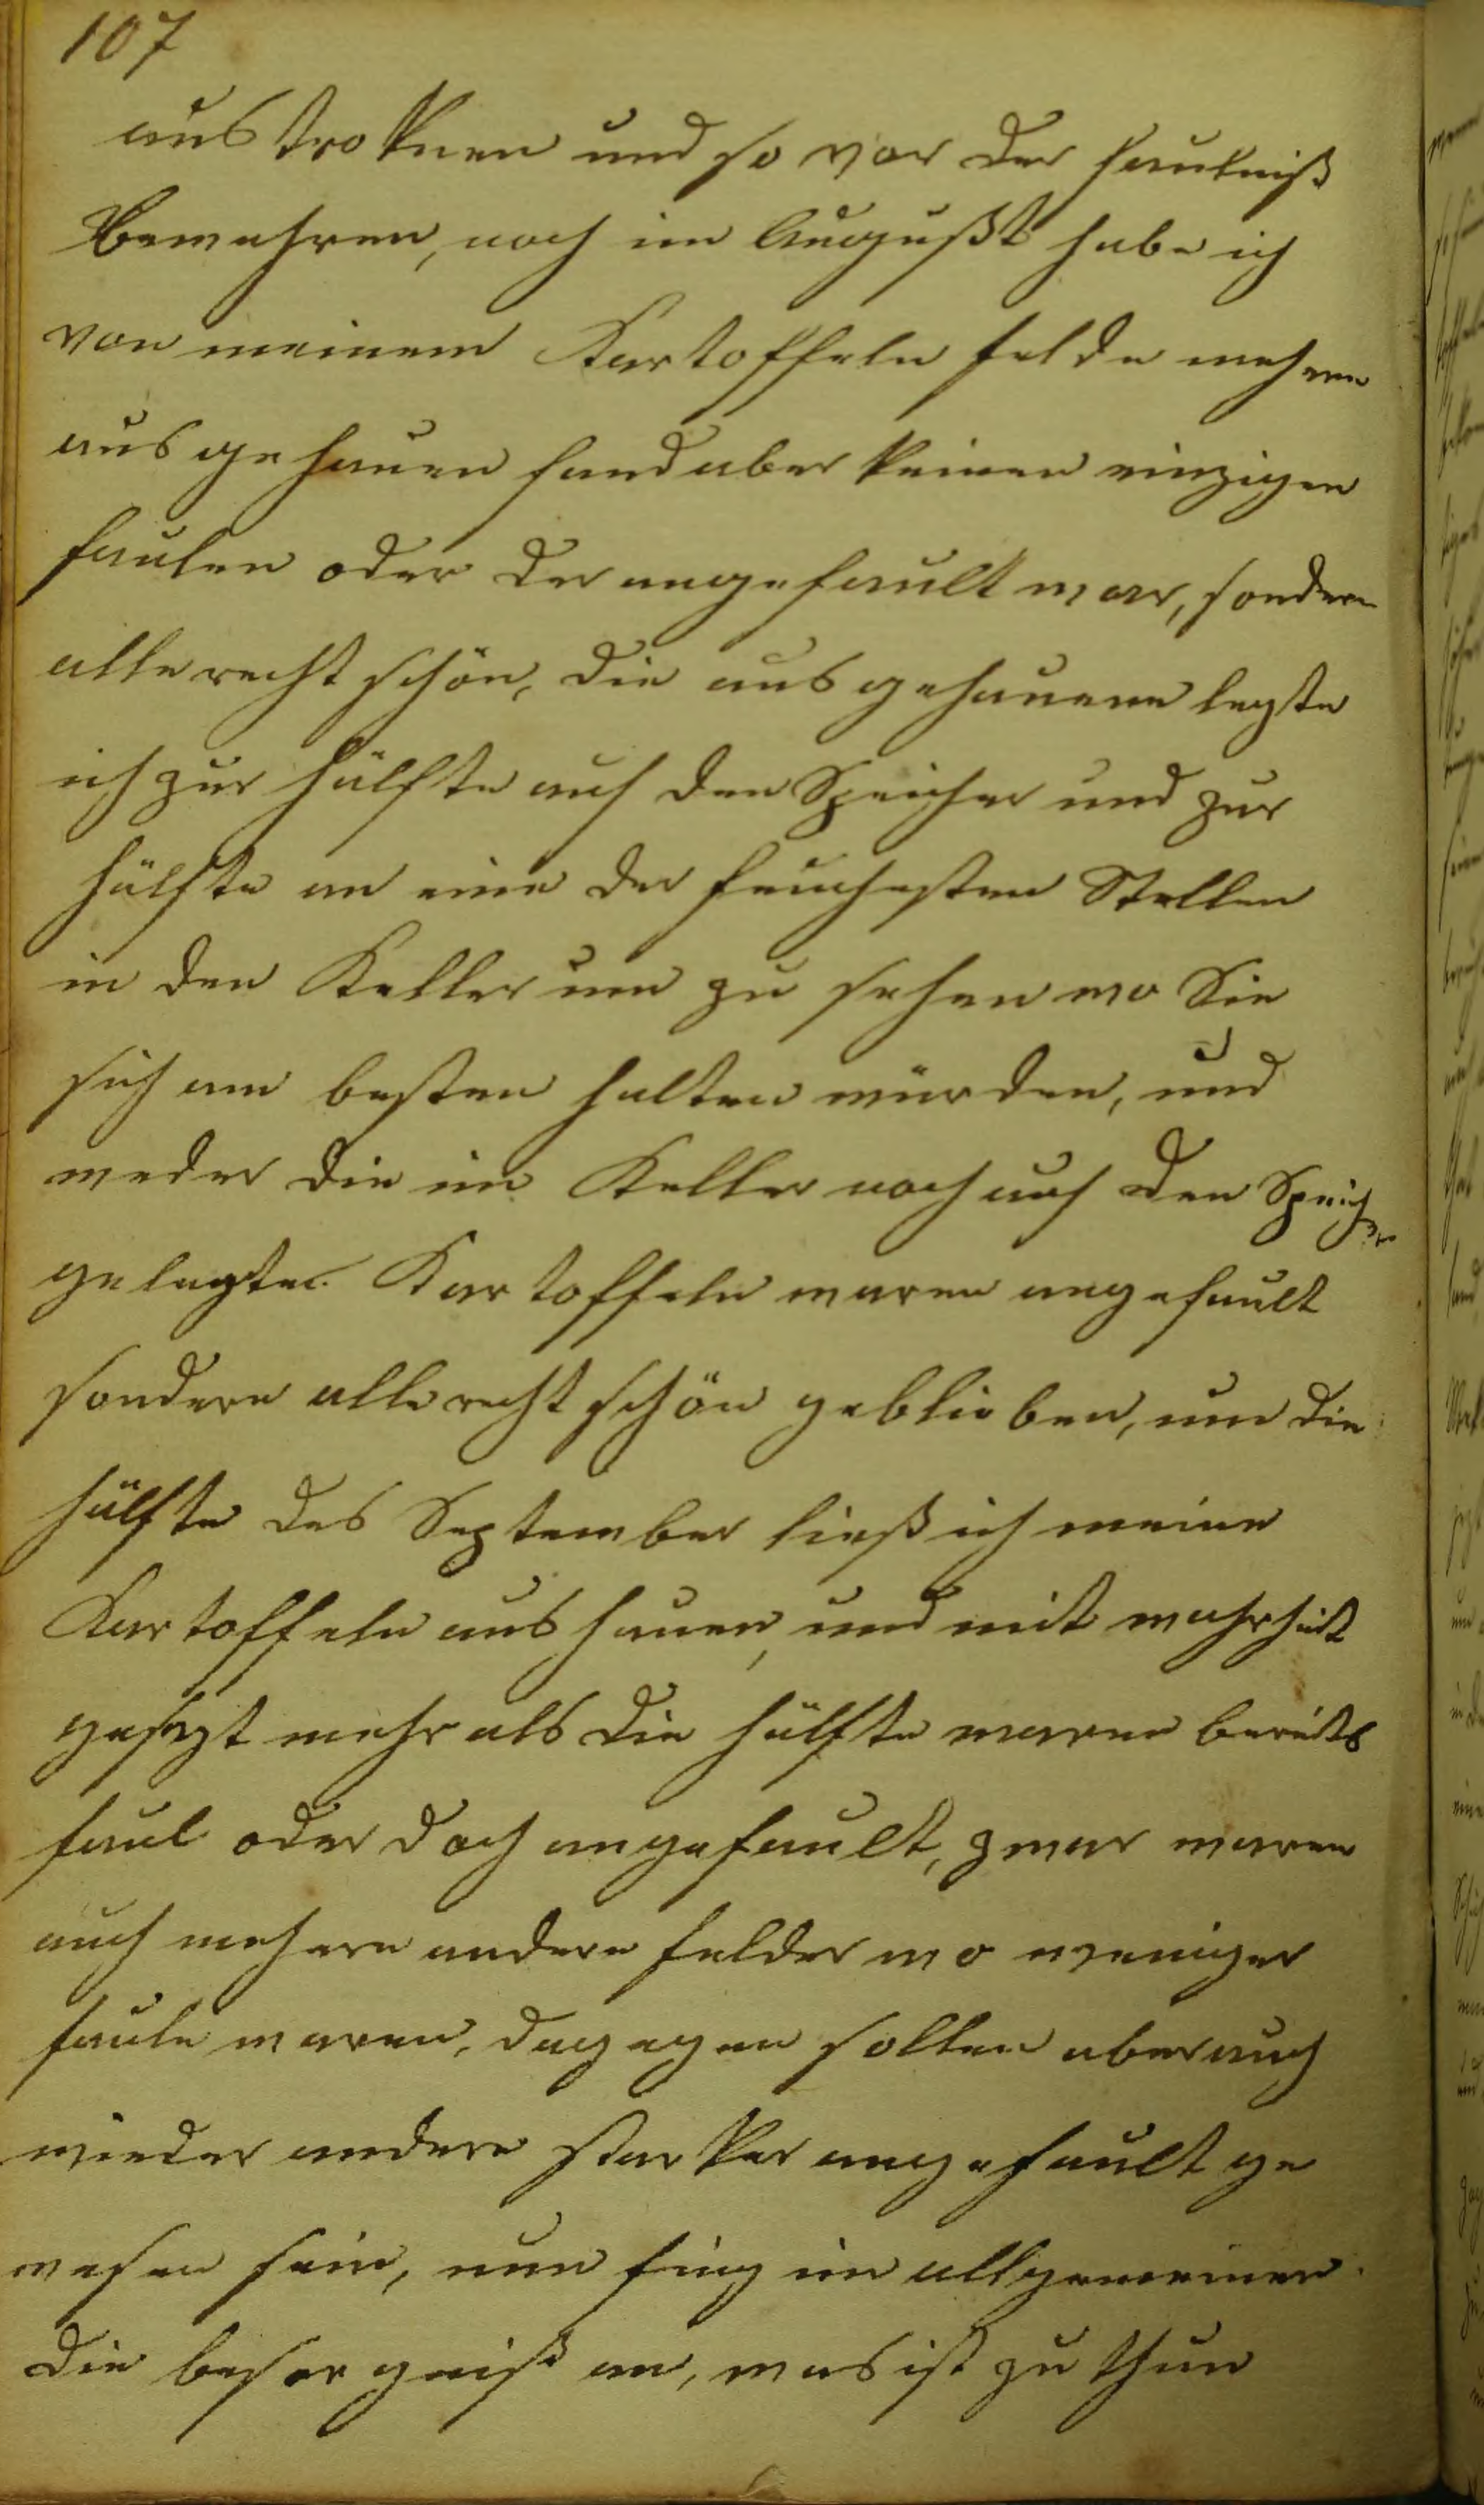 107
austroknen und so vor der faulniß
Bewahren, noch im Augußt habe ich
von meinem Kartoffeln felde mehrere
ausgehauen fand aber keinen einzigen
faulen oder der angefault war, sondern
alle recht schön, die ausgehauene legte
ich zur hälfte auf den Speicher und zur
hälfte an eine der feuchesten Stellen
in den Keller um zu sehen wo Sie
sich am besten halten würden, und
weder die im Keller noch auf den Speicher
gelegte Kartoffeln waren angefault
sondern alle recht schön geblieben, um die
hälfte des September ließ ich meine
Kartoffeln aushauen, und mit wahrheit
gesagt mehr als die hälfte waren bereits
faul oder doch angefault, zwar waren
auch mehere andere felder wo weniger
faule waren, dagegen sollen aber auch
wieder andere starker angefault ge
wesen sein, nun fing im allgemeinen
die besorgniß an, was ist zu thun